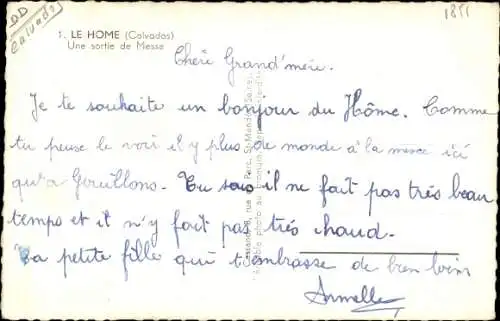 DD
Calvados
1851
1. LE HOME (Calvados)
Une sortie de Messe
Chère Grand'mère.
Je te souhaite un bonjour du Hôme. Comme
tu peuse le voir il y plus de monde à la messe ici
qu'a Gouillons. Tu sais il ne fait pas très beau
temps et il n'y fait pas très chaud.
Ta petite fille qui t'embrasse de bien loin
Armelle